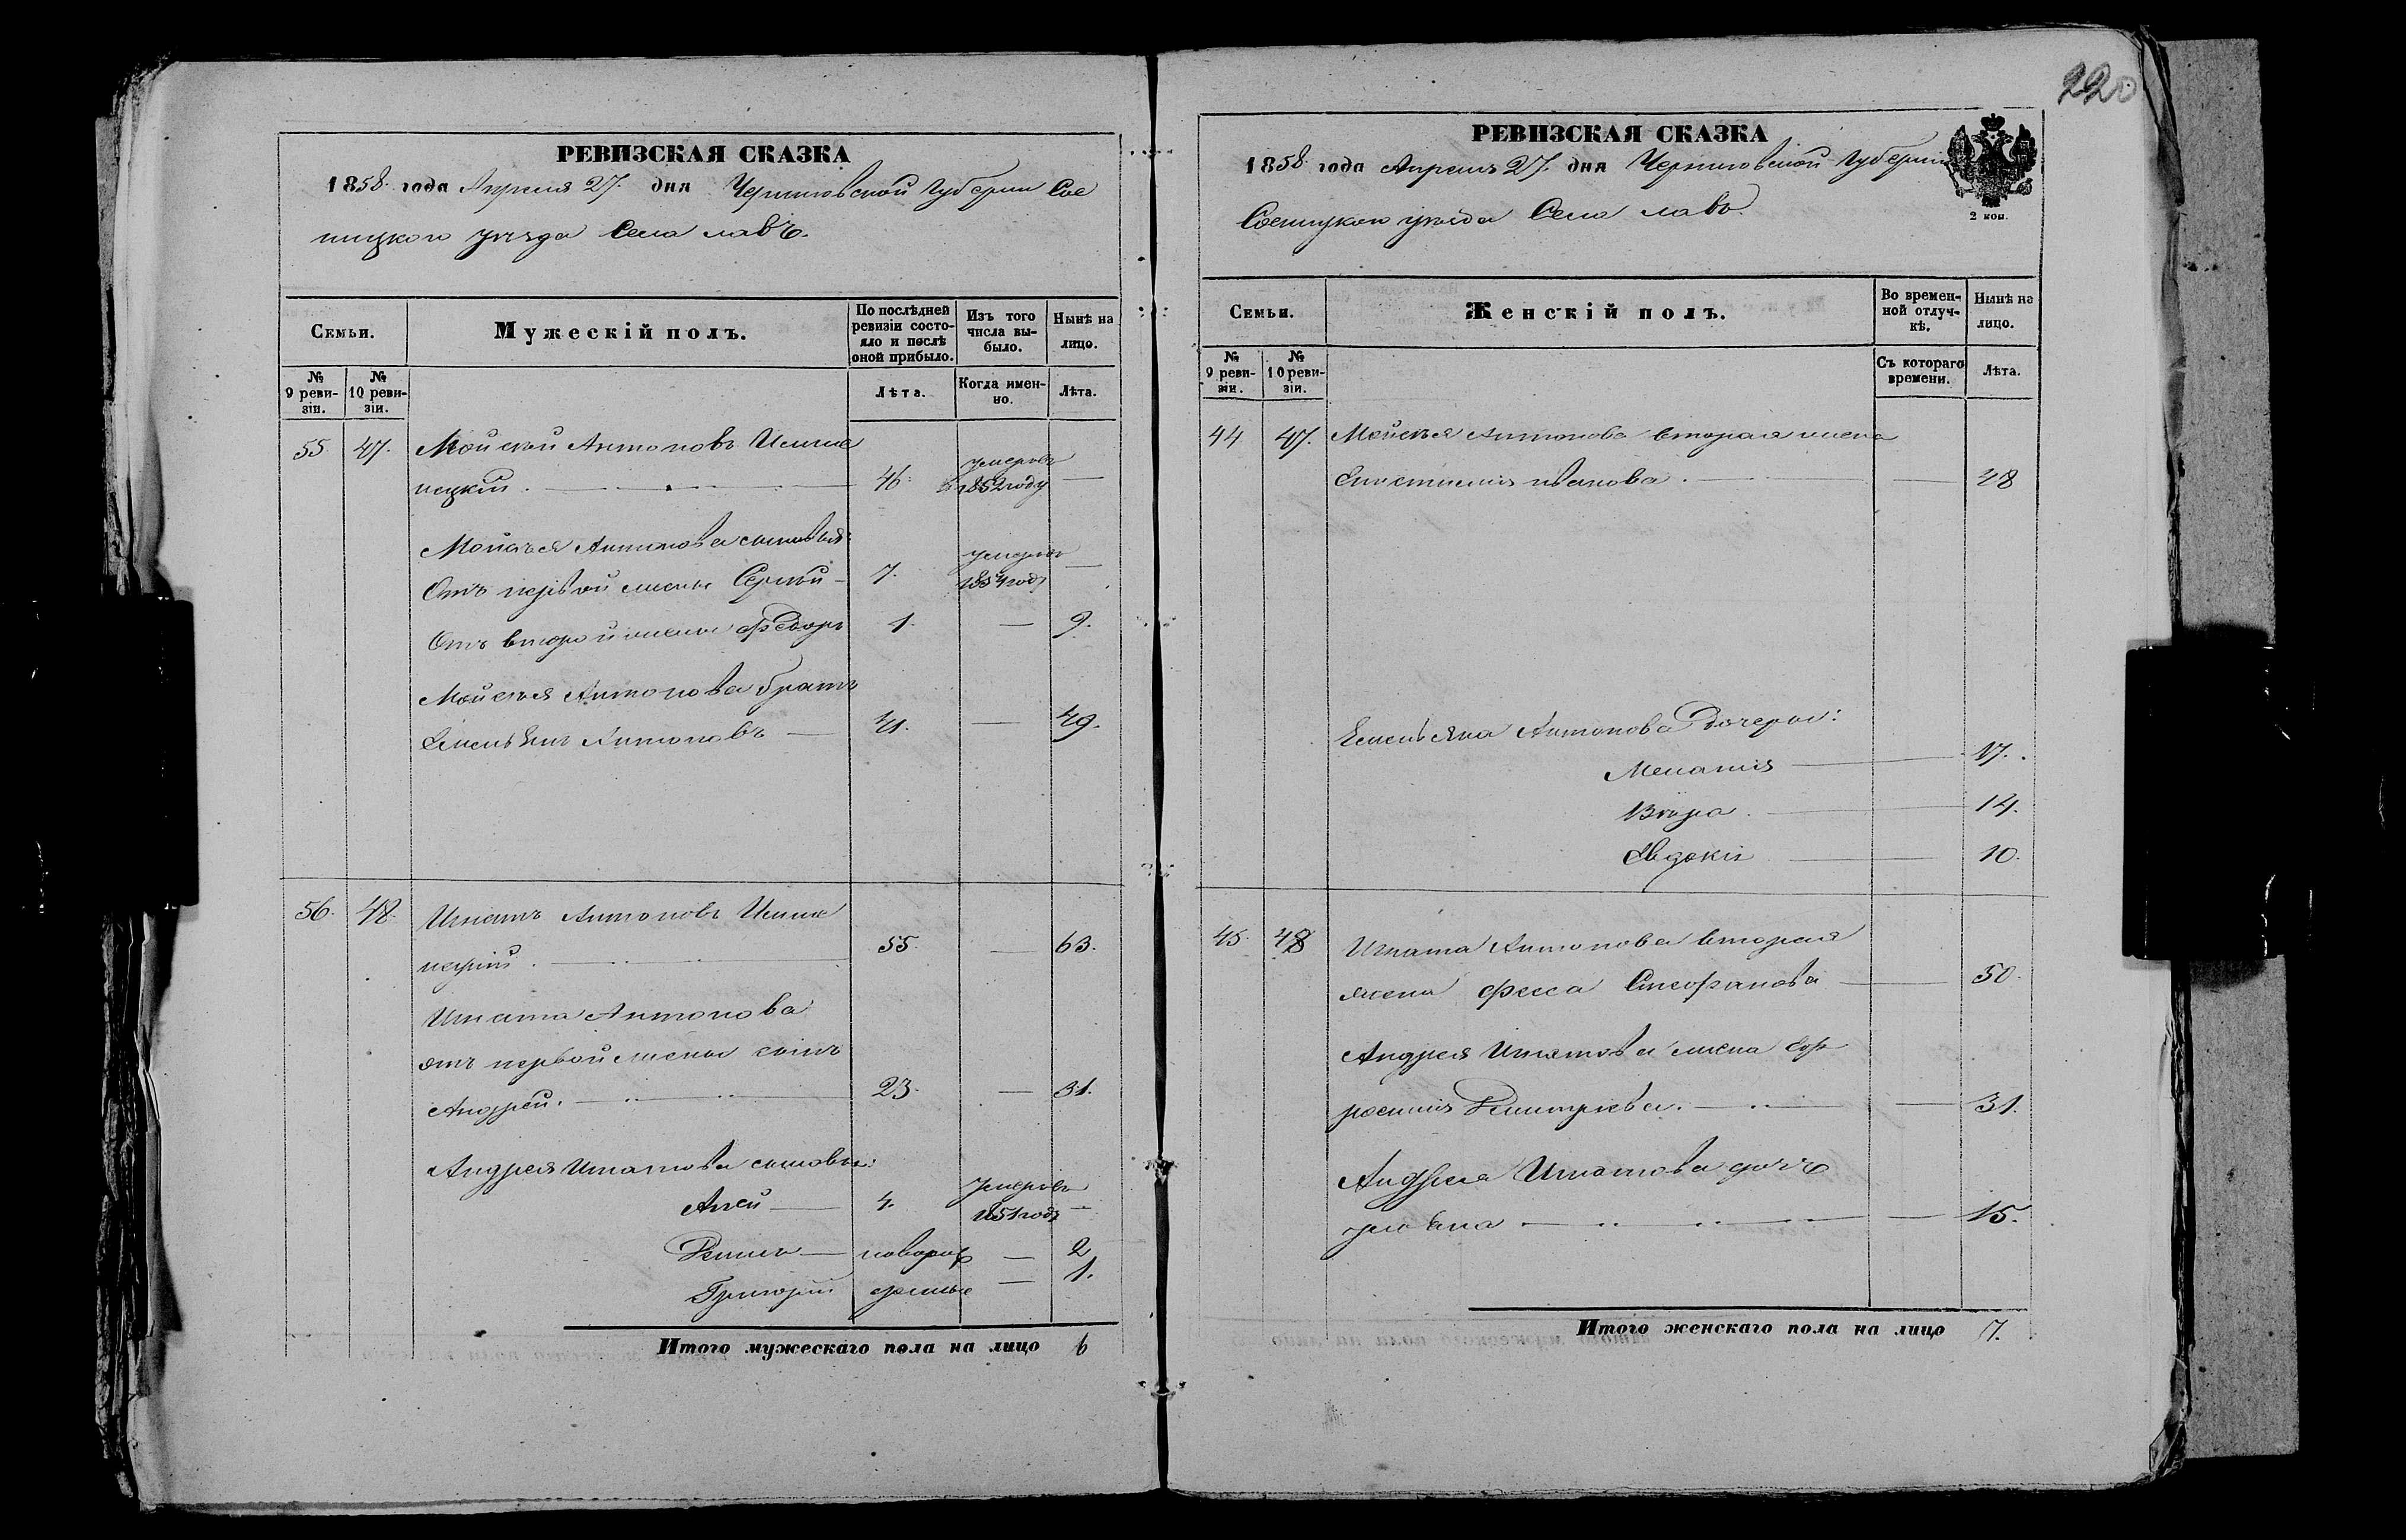 220
РЕВИЗСКАЯ СКАЗКА
1858 года Апреля 27. дня Черниговской Губернии Сос
ницкого уѣзда Села лавъ.
Семьи.
Мужескій полъ.
По послѣдней ревизіи состо-
яло и послѣ оной прибыло.
Изъ того числа вы-
было.
Нынѣ на лицо.
№ 9 реви-
зіи.
№ 10 реви-
зіи.
Лѣта.
Когда имен-
но.
Лѣта.
55 47. Мойсей Антоновъ
46. умеръ в 1852 году —
Мойсея Антонова сыновья:
Отъ первой жены Сергѣй — 7. умеръ 1854 году —
Отъ второй жены Федоръ 1. — 9.
Мойсея Антонова братъ
Емельянъ Антоновъ — 41. — 49.
56. 48. Игнатъ Антоновъ
55. — 63.
Игната Антонова
отъ первой жены сынъ
Андрей. 23. — 31.
Андрея Игнатова сыновья:
4. умеръ 1851 году —
новорож — 2
Григорій денные — 1.
Итого мужескаго пола на лицо 6
РЕВИЗСКАЯ СКАЗКА
1858 года Апреля 27. дня Черниговской Губерніи
Сосницкого уѣзда Села лавъ.
2 коп.
Семьи.
Женскій полъ.
Во времен-
ной отлуч-
кѣ.
Нынѣ на лицо.
№ 9 реви-
зіи.
№ 10 реви-
зіи.
Съ котораго времени.
Лѣта.
44 47. Мойсея Антонова вторая жена
Иванова. — 48
Емельяна Антонова дочери:
Меланія — 17.
Вѣра. — 14.
Евдокія — 10.
45. 48 Игната Антонова вторая
жена Стефанова — 50.
Андрея Игнатова жена Еф
росинія Дмитриева. — 31.
Андрея Игнатова дочь
Ульяна — 15.
Итого женскаго пола на лицо 7.